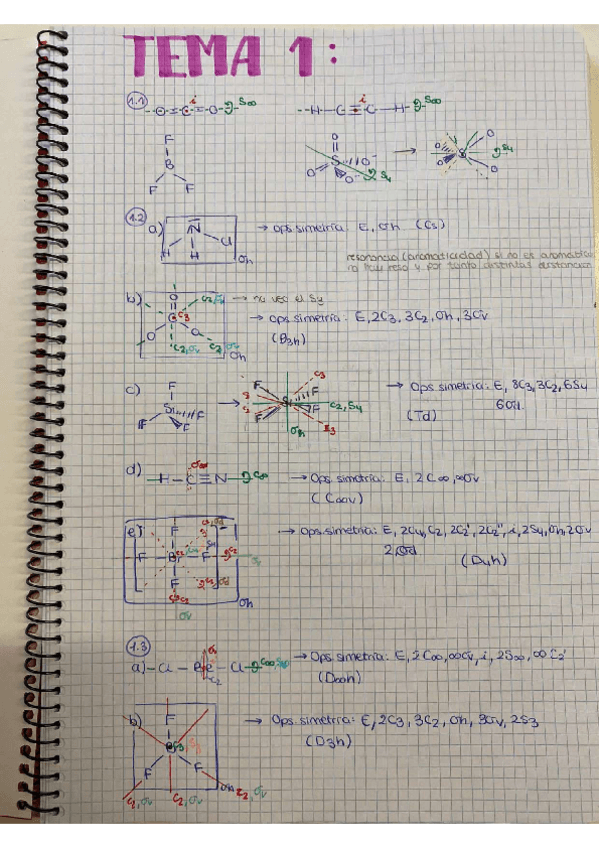 TEMA 1:
1.1 O=C=O i S∞ H-C≡C-H i S∞
F B F F O S O O⁻ O⁻ S4 → S O O O O S4
1.2
a) N H H Cl σh → Ops simetría: E, σh (Cs)
resonancia (aromaticidad) si no es aromático
no hay reso y por tanto distintas distancias
b) O C3 O O C2, σv C2, σv σh → no veo el S3
→ ops simetría: E, 2C3, 3C2, σh, 3σv
(D3h)
c) F Si F F F → F F Si F F C3 C2, S4 C3 → Ops simetría: E, 8C3, 3C2, 6S4
6σd
(Td)
d) H-C≡N C∞ σ∞ → Ops simetría: E, 2C∞, ∞σv
(C∞v)
e) F F Br F F C2 σv σh → Ops simetría: E, 2C4, C2, 2C2', 2C2'', i, 2S4, σh, 2σv
2σd
(D4h)
1.3
a) Cl-Be-Cl C∞, S∞ C2 → Ops simetría: E, 2C∞, ∞σv, i, 2S∞, ∞C2'
(D∞h)
b) F B F F σh C2, σv C2, σv C2, σv → Ops simetría: E, 2C3, 3C2, σh, 3σv, 2S3
(D3h)